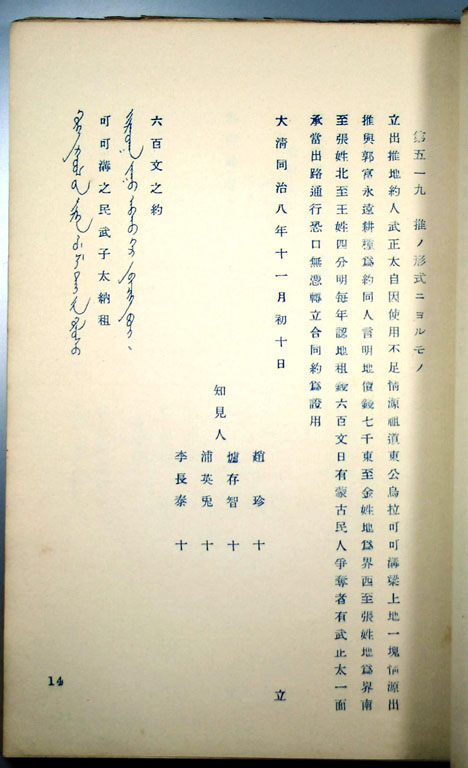 第五一九 推ノ形式ニヨルモノ
立出推地約人武正太自因使用不足情源祖道東公烏拉叮叮溝梁上地一塊情源出
推與郭富永遠耕種爲約同人言明地價錢七千東至金姓地爲界西至張姓地爲界南
至張姓北至王姓四分明每年認地租錢六百文日有蒙古民人爭奪者有武正太一面
承當出路通行恐口無憑轉立合同約爲證用
大清同治八年十一月初十日 立
知見人 趙珍 十
爐存智 十
浦英兎 十
李長泰 十
六百文之約
叮叮溝之民武子太納租
14